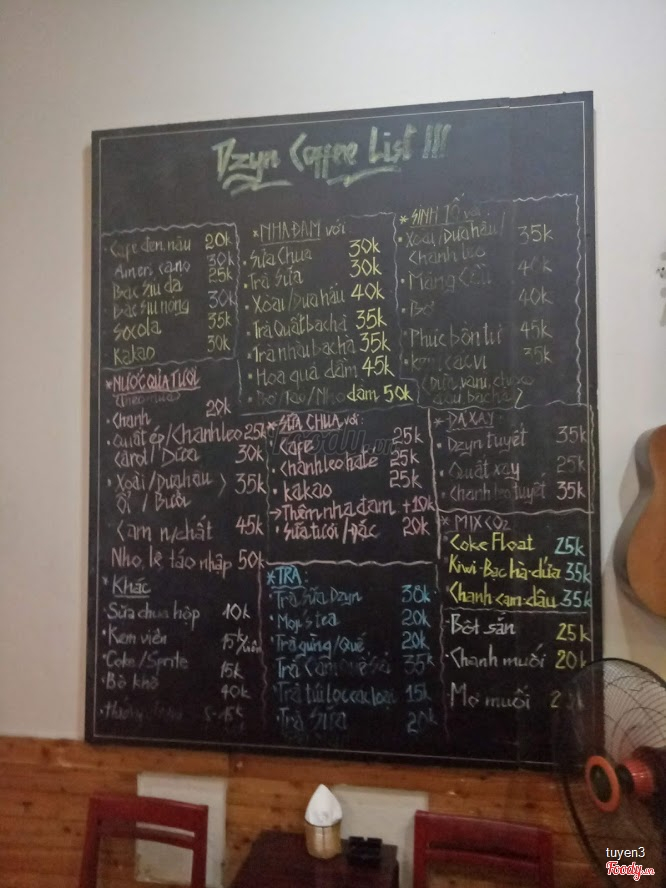 Dzyn Coffee List !!!
Cafe đen, nâu 20k
Americano 30k
Bạc sỉu đá 25k
Bạc sỉu nóng 30k
Socola 35k
Kakao 30k
* NHA ĐAM với
Sữa Chua 30k
Trà Sữa 30k
Xoài/Dưa hấu 40k
Trà Quất bạc hà 35k
Trà nhài bạc hà 35k
Hoa quả dầm 45k
Bơ/Táo/Nho dầm 50k
* SINH TỐ với
Xoài/Dưa hấu/ 35k
Chanh leo
Mãng Cầu 40k
Bơ 40k
Phúc bồn tử 45k
Kem các vị 35k
* NƯỚC QUẢ TƯƠI
(Theo mùa)
Chanh 20k
Quất ép/Chanh leo 25k
Carot/Dứa 30k
Xoài/Dưa hấu 35k
Ổi/Bưởi
Cam n/chất 45k
Nho, lê táo nhập 50k
* SỮA CHUA với:
Cafe 25k
Chanh leo hate 25k
kakao 25k
→ Thêm nha đam +10k
Sữa tươi/Đặc 20k
* ĐÁ XAY:
Dzyn tuyết 35k
Quất xay 25k
Chanh leo tuyết 35k
* MIX CO2
Coke Float 25k
Kiwi-Bạc hà-dứa 35k
Chanh-cam-dâu 35k
Bột sắn 25k
Chanh muối 20k
Mơ muối
* Khác
Sữa chua hộp 10k
Kem viên 15k/viên
Coke/Sprite 15k
Bò khô 40k
* TRÀ:
Trà Sữa Dzyn 30k
Mojis tea 20k
Trà gừng/Quế 20k
Trà Cam quế sả 35k
Trà túi lọc các loại 15k
Trà Sữa 20k
Foody.vn
tuyen3
Foody.vn